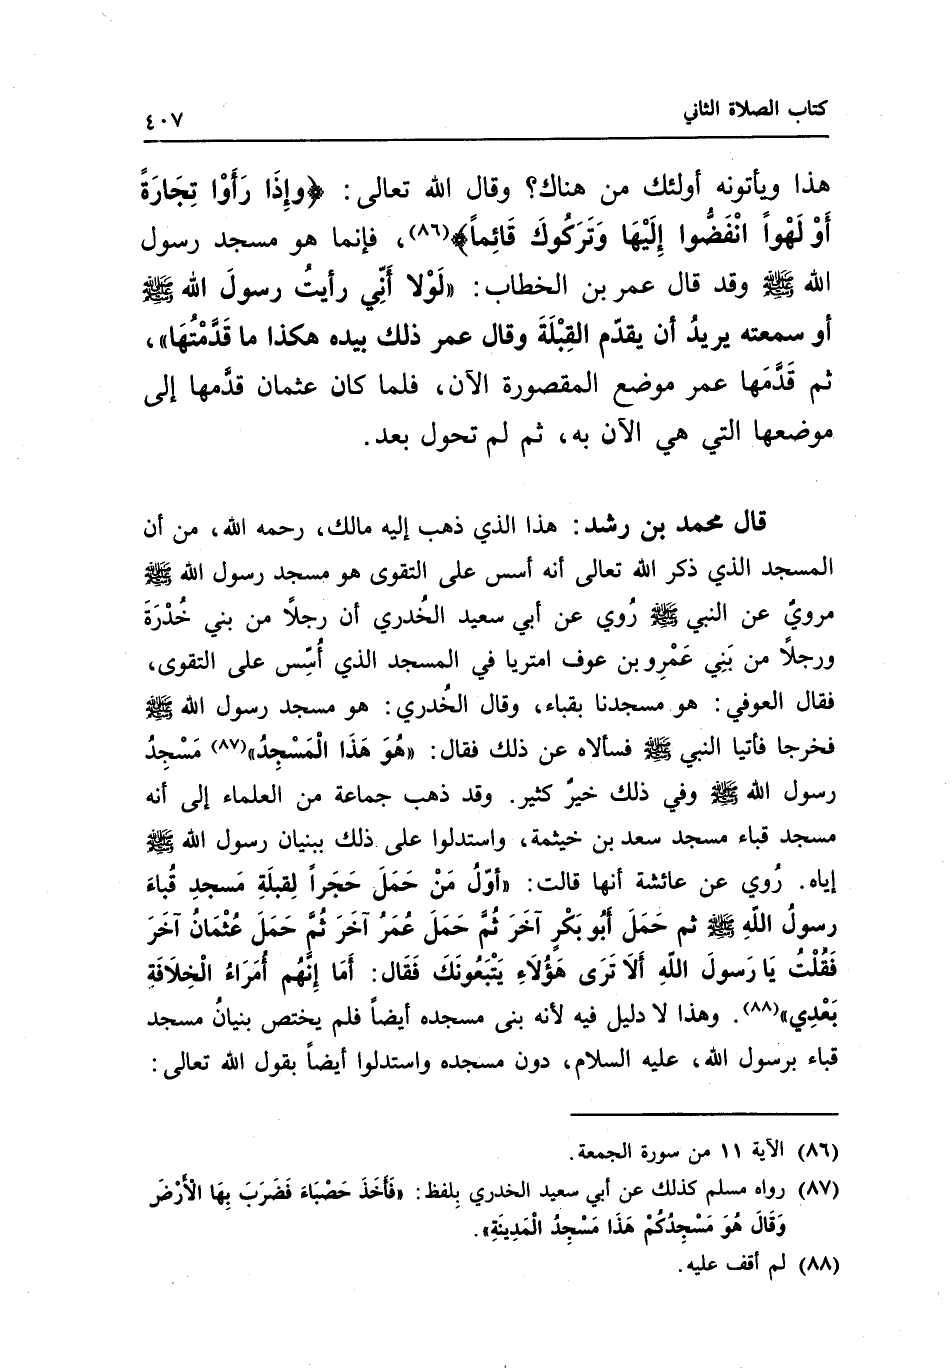 كتاب الصلاة الثاني
٤٠٧
هذا ويأتونه أولئك من هناك؟ وقال الله تعالى: ﴿وإِذَا رَأَوْا تِجَارَةً
أَوْ لَهْواً انْفَضُّوا إِلَيْهَا وَتَرَكُوكَ قَائِماً﴾(٨٦)، فإنما هو مسجد رسول
الله ﷺ وقد قال عمر بن الخطاب: «لَوْلا أَنِّي رأيتُ رسولَ الله ﷺ
أو سمعته يريدُ أن يقدّم القِبْلَةَ وقال عمر ذلك بيده هكذا ما قَدَّمْتُهَا»،
ثم قَدَّمَها عمر موضع المقصورة الآن، فلما كان عثمان قدَّمها إلى
موضعها التي هي الآن به، ثم لم تحول بعد.
قال محمد بن رشد: هذا الذي ذهب إليه مالك، رحمه الله، من أن
المسجد الذي ذكر الله تعالى أنه أسس على التقوى هو مسجد رسول الله ﷺ
مرويٌ عن النبي ﷺ رُوي عن أبي سعيد الخُدري أن رجلاً من بني خُدْرَةَ
ورجلاً من بَنِي عَمْرِو بن عوف امتريا في المسجد الذي أُسِّس على التقوى،
فقال العوفي: هو مسجدنا بقباء، وقال الخُدري: هو مسجد رسول الله ﷺ
فخرجا فأتيا النبي ﷺ فسألاه عن ذلك فقال: «هُوَ هَذَا الْمَسْجِدُ»(٨٧) مَسْجِدُ
رسول الله ﷺ وفي ذلك خيرٌ كثير. وقد ذهب جماعة من العلماء إلى أنه
مسجد قباء مسجد سعد بن خيثمة، واستدلوا على ذلك ببنيان رسول الله ﷺ
إياه. رُوي عن عائشة أنها قالت: «أوّلُ مَنْ حَمَلَ حَجَراً لِقبلَةِ مَسجدِ قُباءَ
رسولُ اللّهِ ﷺ ثم حَمَلَ أَبُو بَكْرٍ آخَرَ ثُمَّ حَمَلَ عُمَرُ آخَرَ ثُمَّ حَمَلَ عُثْمَانُ آخَرَ
فَقُلْتُ يَا رَسولَ اللّهِ أَلاَ تَرَى هَؤُلاَءِ يَتْبَعُونَكَ فَقَال: أَمَا إِنَّهُم أُمَرَاءُ الْخِلاَفَةِ
بَعْدِي»(٨٨). وهذا لا دليل فيه لأنه بنى مسجده أيضاً فلم يختص بنيانُ مسجد
قباء برسول الله، عليه السلام، دون مسجده واستدلوا أيضاً بقول الله تعالى:
(٨٦) الآية ١١ من سورة الجمعة.
(٨٧) رواه مسلم كذلك عن أبي سعيد الخدري بِلفظ: «فَأَخَذَ حَصْبَاءَ فَضَرَبَ بِهَا الْأَرْضَ
وَقَالَ هُوَ مَسْجِدُكُمْ هَذَا مَسْجِدُ الْمَدِينَةِ».
(٨٨) لم أقف عليه.